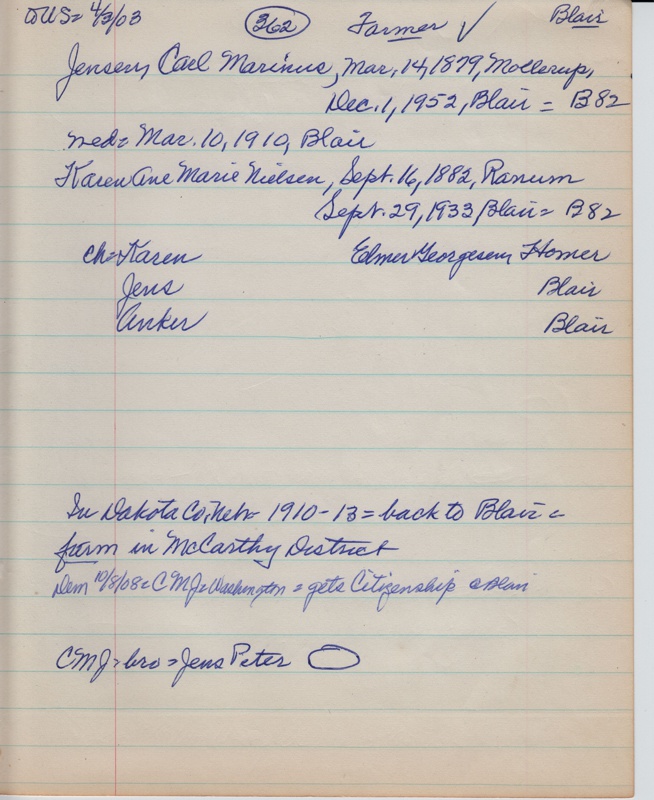 to US = 4/3/03 362 Farmer ✓ Blair
Jensen, Carl Marinus, Mar. 14, 1879, Mollerup,
Dec. 1, 1952, Blair = B82
med = Mar. 10, 1910, Blair
Karen Ane Marie Nielsen, Sept. 16, 1882, Ranum
Sept. 29, 1933 Blair = B82
ch = Karen Elmer Georgesen, Homer
Jens Blair
Anker Blair
In Dakota Co, Neb - 1910-13 = back to Blair =
farm in McCarthy District
Dem 10/8/08 = CMJ = Washington = gets Citizenship @ Blair
CMJ = bro = Jens Peter